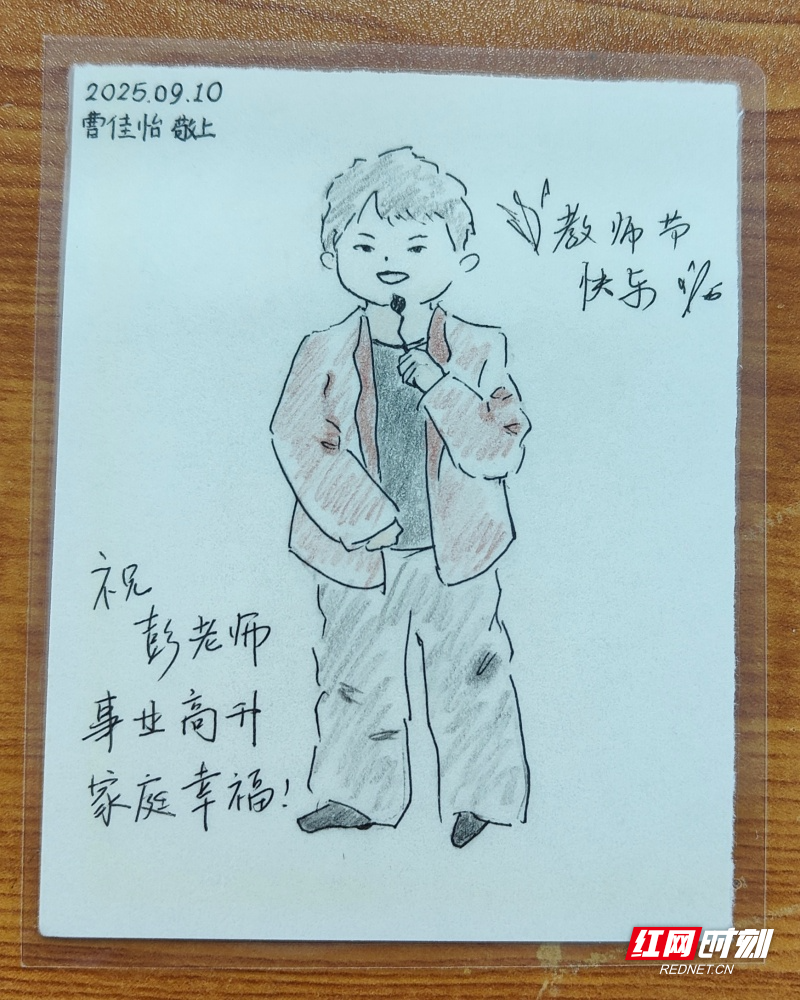 2025.09.10
曹佳怡 敬上
教师节
快乐
祝
彭老师
事业高升
家庭幸福!
红网时刻
REDNET.CN